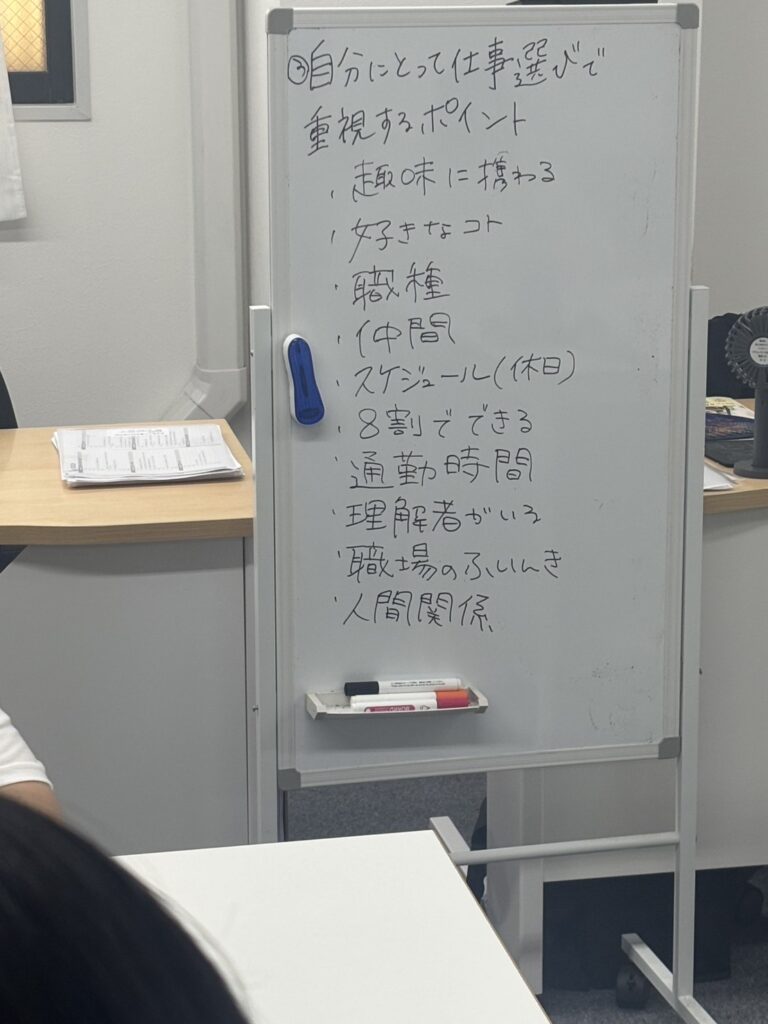 ③自分にとって仕事選びで
重視するポイント
・趣味に携わる
・好きなコト
・職種
・仲間
・スケジュール(休日)
・8割でできる
・通勤時間
・理解者がいる
・職場のふいんき
・人間関係